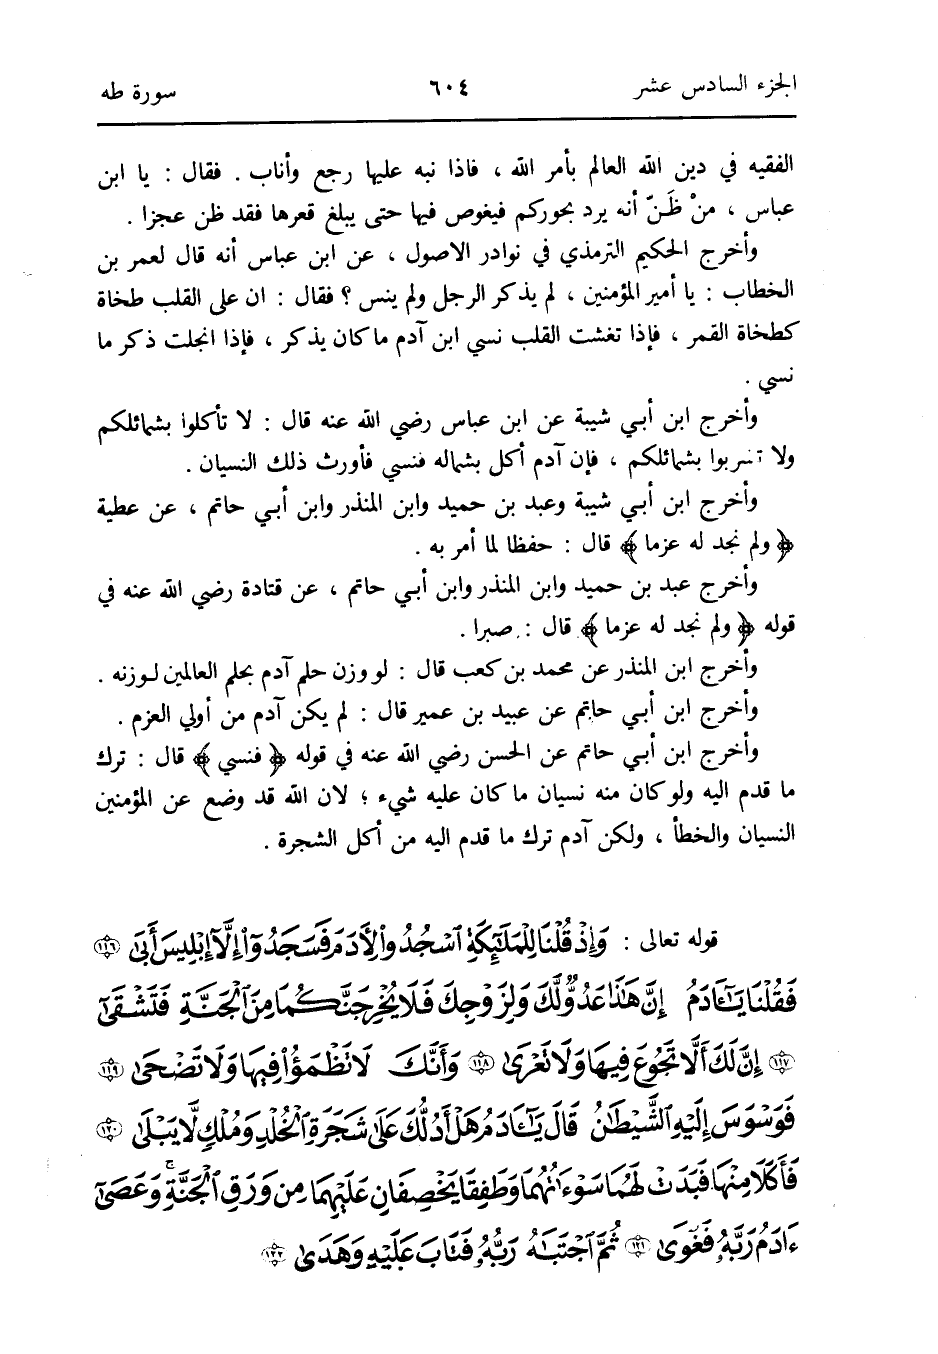 الجزء السادس عشر ٦٠٤ سورة طه
الفقيه في دين الله العالم بأمر الله ، فاذا نبه عليها رجع وأناب . فقال : يا ابن
عباس ، منْ ظَنّ أنه يرد بحوركم فيغوص فيها حتى يبلغ قعرها فقد ظن عجزا .
وأخرج الحكيم الترمذي في نوادر الاصول ، عن ابن عباس أنه قال لعمر بن
الخطاب : يا أمير المؤمنين ، لم يذكر الرجل ولم ينس ؟ فقال : ان على القلب طخاة
كطخاة القمر ، فإذا تغشت القلب نسي ابن آدم ما كان يذكر ، فإذا انجلت ذكر ما
نسي .
وأخرج ابن أبي شيبة عن ابن عباس رضي الله عنه قال : لا تأكلوا بشمائلكم
ولا تشربوا بشمائلكم ، فإن آدم أكل بشماله فنسي فأورث ذلك النسيان .
وأخرج ابن أبي شيبة وعبد بن حميد وابن المنذر وابن أبي حاتم ، عن عطية
﴿ ولم نجد له عزما ﴾ قال : حفظا لما أمر به .
وأخرج عبد بن حميد وابن المنذر وابن أبي حاتم ، عن قتادة رضي الله عنه في
قوله ﴿ ولم نجد له عزما ﴾ قال : صبرا .
وأخرج ابن المنذر عن محمد بن كعب قال : لو وزن حلم آدم بحلم العالمين لوزنه .
وأخرج ابن أبي حاتم عن عبيد بن عمير قال : لم يكن آدم من أولي العزم .
وأخرج ابن أبي حاتم عن الحسن رضي الله عنه في قوله ﴿ فنسي ﴾ قال : ترك
ما قدم اليه ولو كان منه نسيان ما كان عليه شيء ؛ لان الله قد وضع عن المؤمنين
النسيان والخطأ ، ولكن آدم ترك ما قدم اليه من أكل الشجرة .
قوله تعالى : وَإِذْ قُلْنَا لِلْمَلَٰٓئِكَةِ ٱسْجُدُوا۟ لِأٓدَمَ فَسَجَدُوٓا۟ إِلَّآ إِبْلِيسَ أَبَىٰ ١١٦
فَقُلْنَا يَٰٓـَٔادَمُ إِنَّ هَٰذَا عَدُوٌّ لَّكَ وَلِزَوْجِكَ فَلَا يُخْرِجَنَّكُمَا مِنَ ٱلْجَنَّةِ فَتَشْقَىٰٓ
١١٧ إِنَّ لَكَ أَلَّا تَجُوعَ فِيهَا وَلَا تَعْرَىٰ ١١٨ وَأَنَّكَ لَا تَظْمَؤُا۟ فِيهَا وَلَا تَضْحَىٰ ١١٩
فَوَسْوَسَ إِلَيْهِ ٱلشَّيْطَٰنُ قَالَ يَٰٓـَٔادَمُ هَلْ أَدُلُّكَ عَلَىٰ شَجَرَةِ ٱلْخُلْدِ وَمُلْكٍ لَّا يَبْلَىٰ ١٢٠
فَأَكَلَا مِنْهَا فَبَدَتْ لَهُمَا سَوْءَٰتُهُمَا وَطَفِقَا يَخْصِفَانِ عَلَيْهِمَا مِن وَرَقِ ٱلْجَنَّةِ ۚ وَعَصَىٰٓ
ءَادَمُ رَبَّهُۥ فَغَوَىٰ ١٢١ ثُمَّ ٱجْتَبَٰهُ رَبُّهُۥ فَتَابَ عَلَيْهِ وَهَدَىٰ ١٢٢